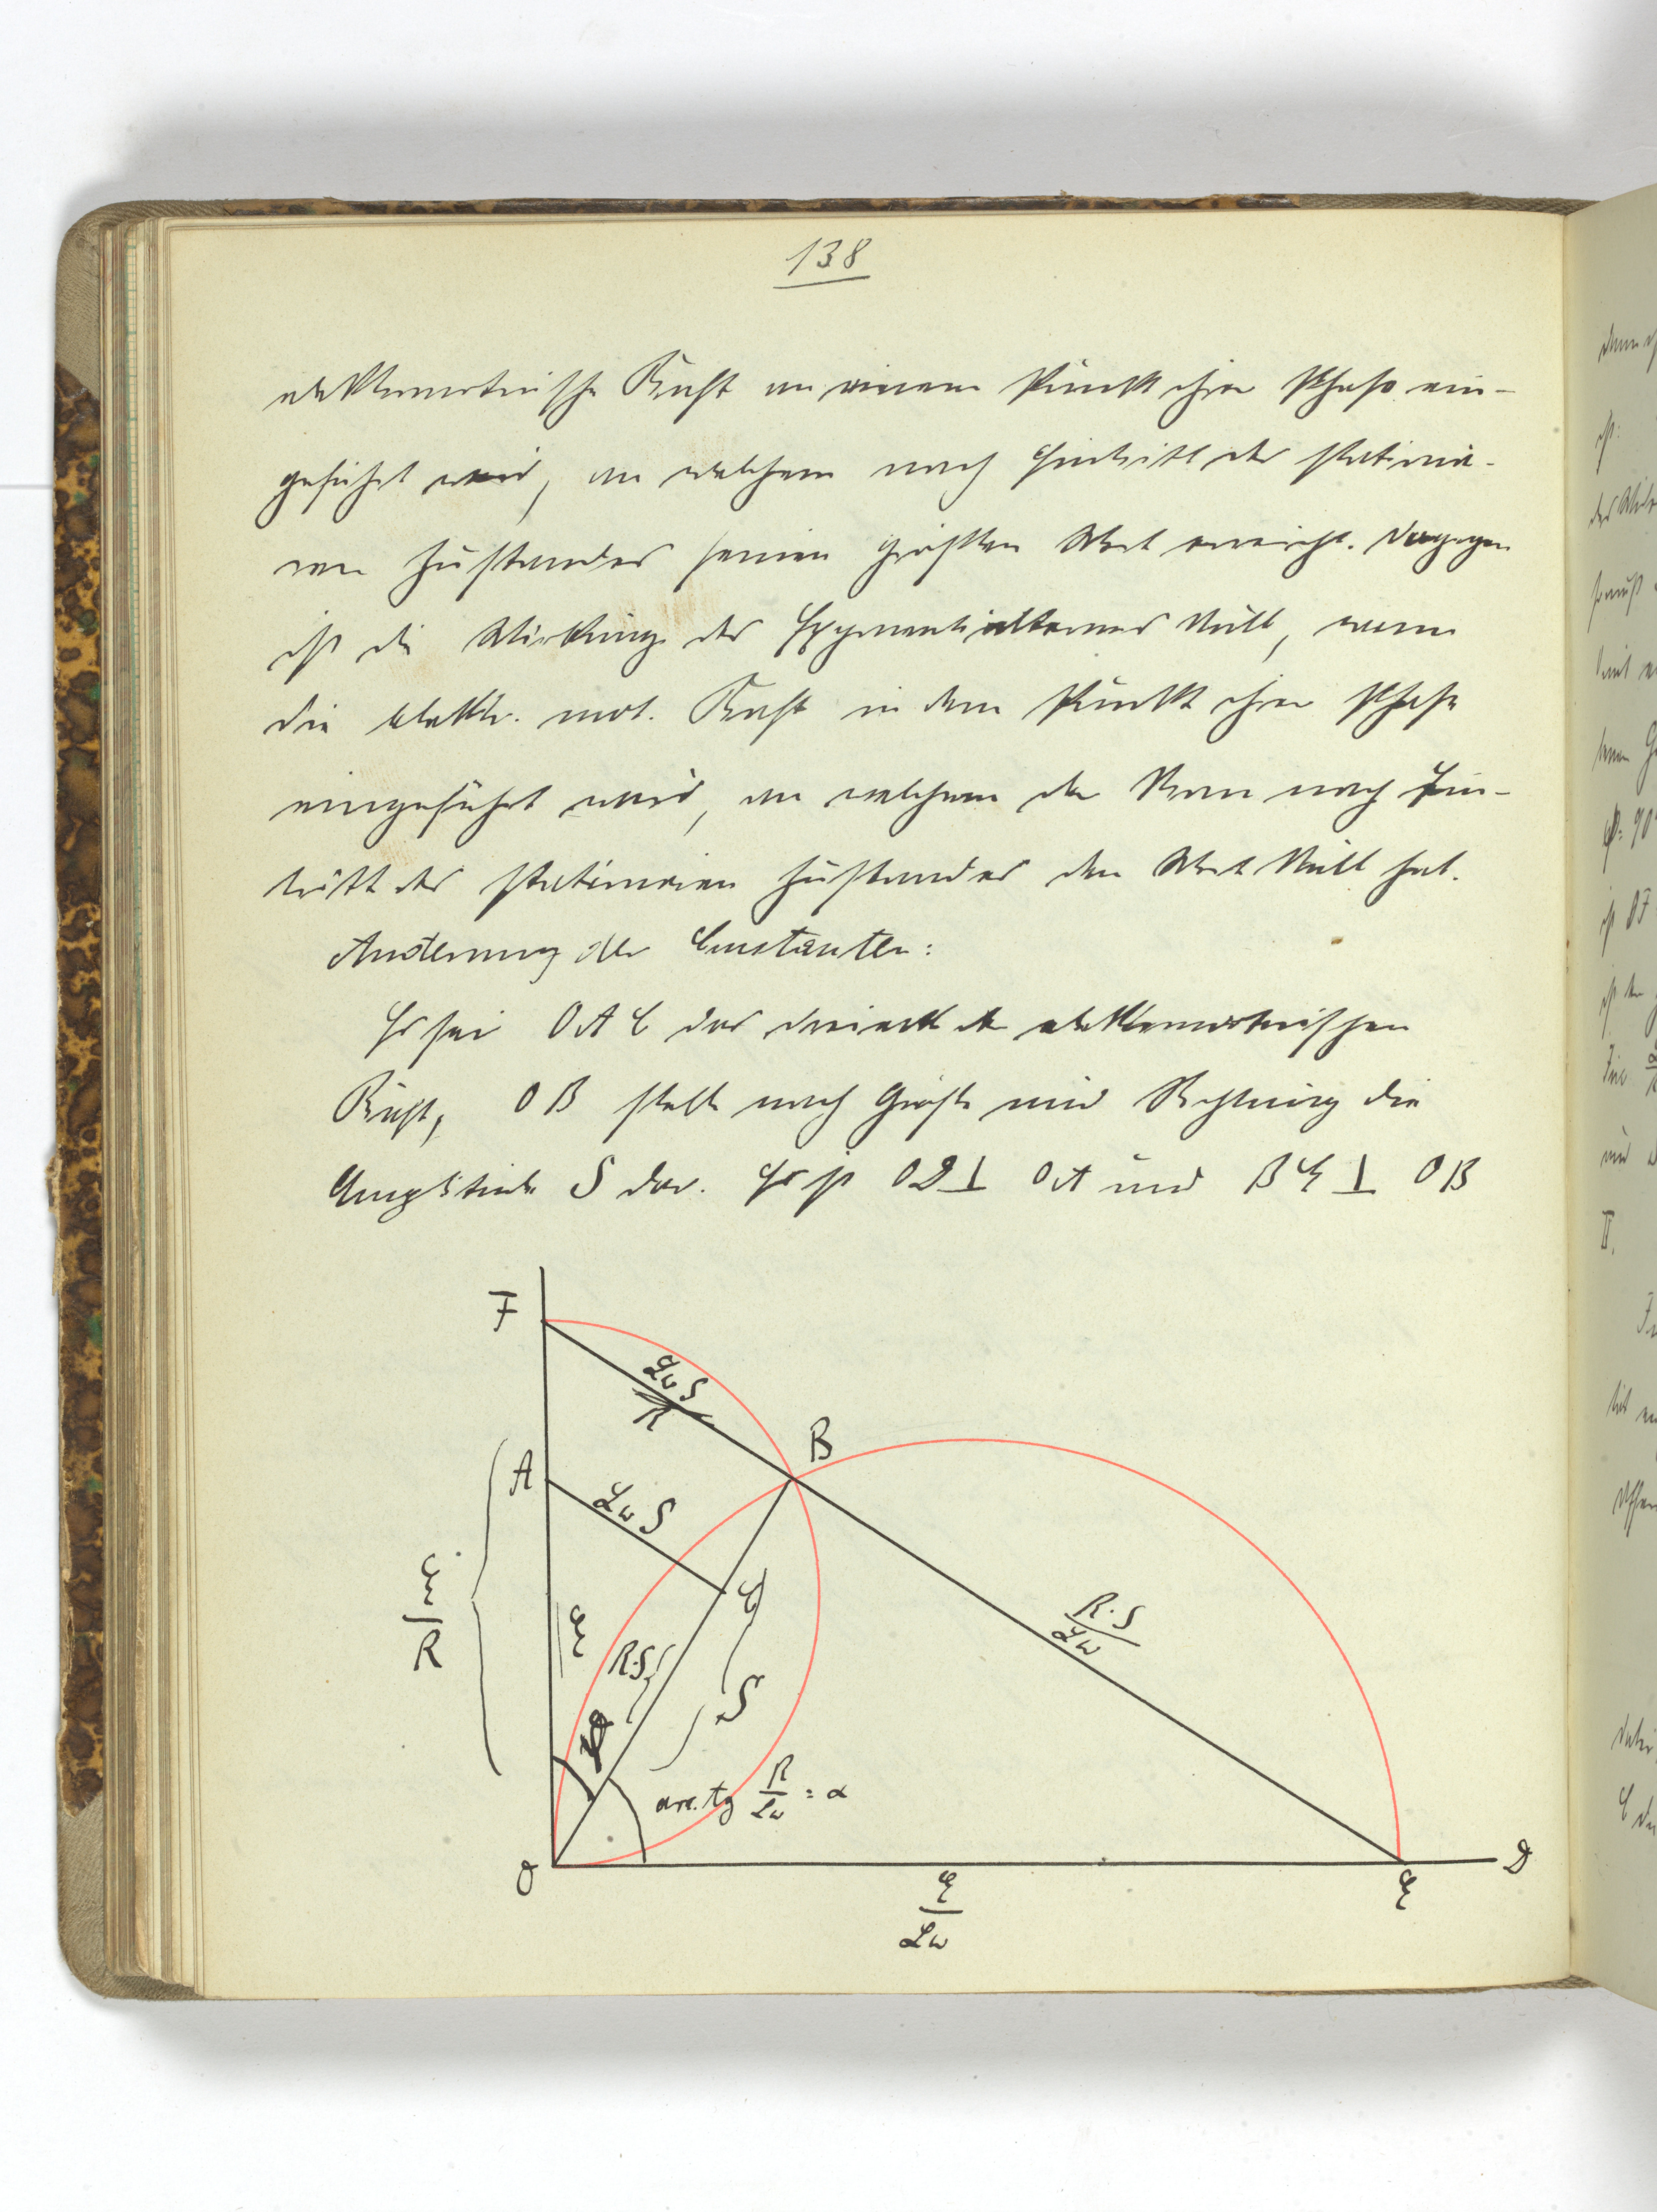 138
elektromotorische Kraft an einem Punkt ihrer Phase ein-
geführt wird, an welchem nach Eintritt des stationä-
ren Zustandes seinen größten Wert erreicht. Dagegen
ist die Wirkung des Exponentialtermes Null, wenn
die elektr. mot. Kraft in dem Punkt ihrer Phase
eingeführt wird, an welchem der Strom nach Ein-
tritt des stationären Zustandes den Wert Null hat.
Änderung der Constanten:
Es sei OAC das Dreieck der elektromotorischen
Kräfte, OB stelle nach Größe und Richtung die
Amplitude S dar. Es ist OD ⊥ OA und BE ⊥ OB
F
LωS/R
B
A
LωS
E/R
E
C
R·S
R·S/Lω
S
φ
arc. tg R/Lω = α
O
E/Lω
E
D